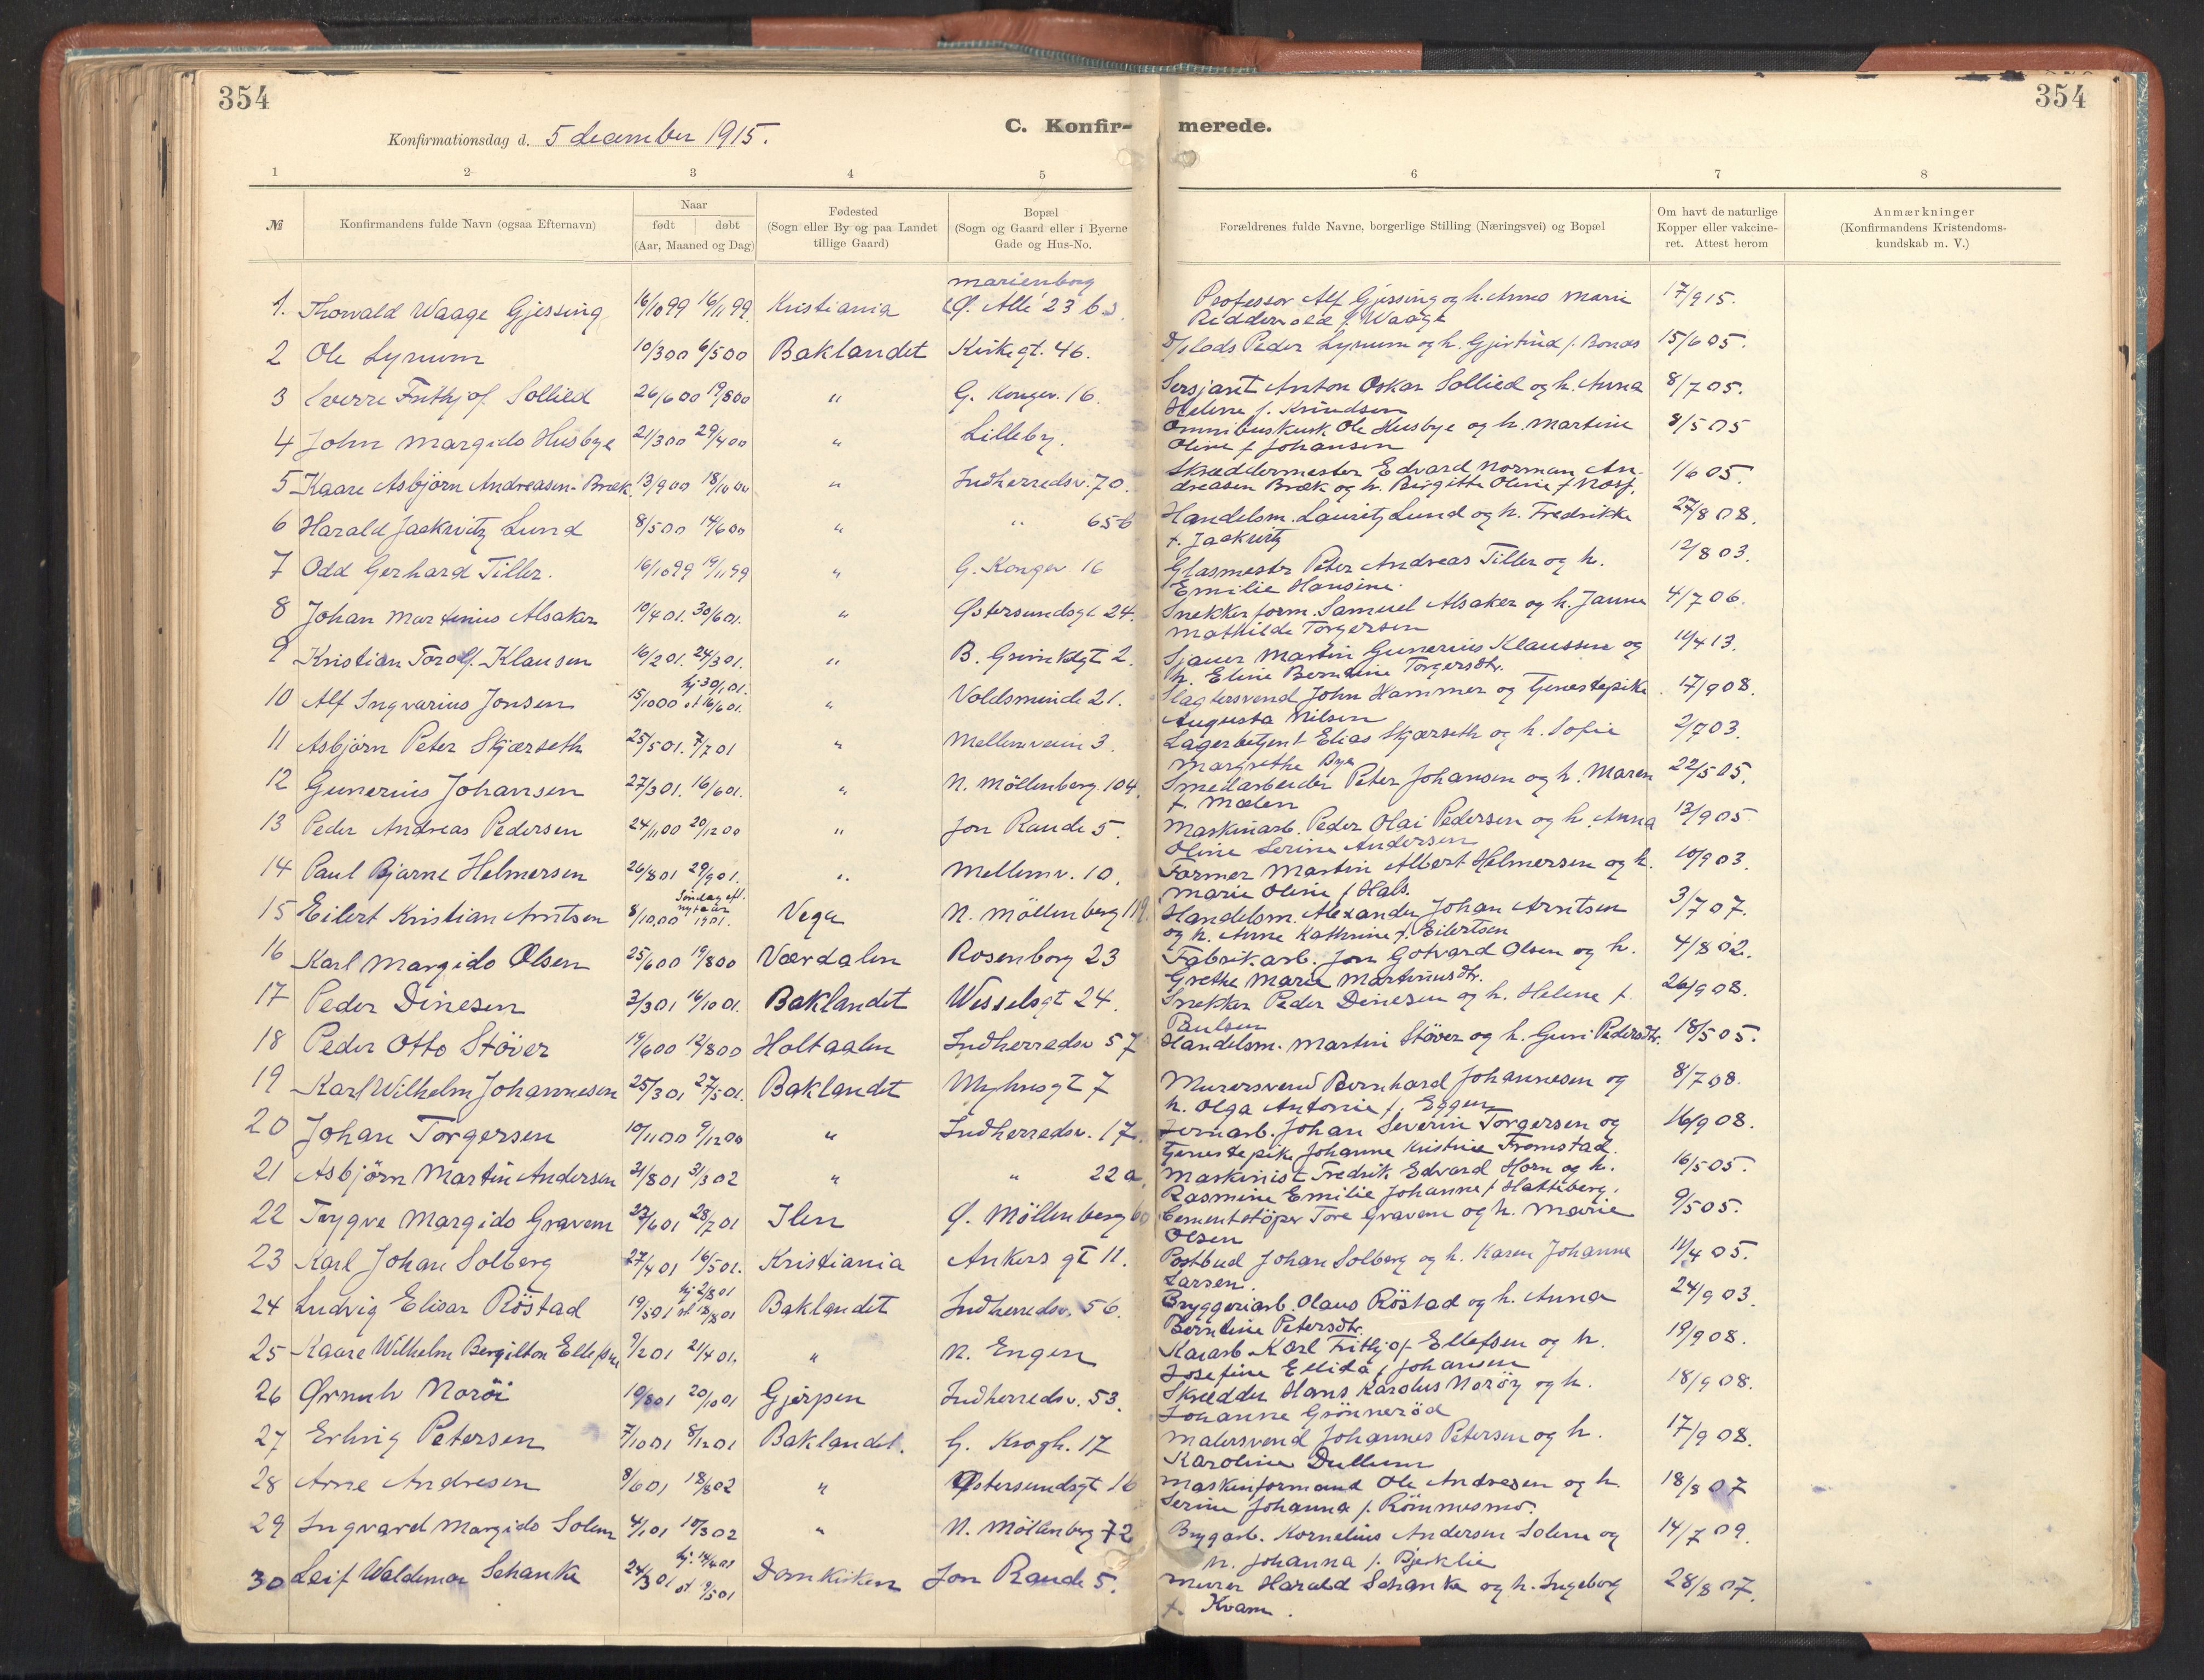 354
354
C. Konfir-
merede.
Konfirmationsdag d. 5 december 1915.
1 2 3 4 5 6 7 8
№ Konfirmandens fulde Navn (ogsaa Efternavn)
Naar
født døbt
(Aar, Maaned og Dag)
Fødested
(Sogn eller By og paa Landet
tillige Gaard)
Bopæl
(Sogn og Gaard eller i Byerne
Gade og Hus-No.
Forældrenes fulde Navne, borgerlige Stilling (Næringsvei) og Bopæl
Om havt de naturlige
Kopper eller vakcine-
ret. Attest herom
Anmærkninger
(Konfirmandens Kristendoms-
kundskab m. V.)
marienborg
1. Thorvald Waage Gjessing 16/10 99 16/11 99 Kristiania Ø. Allé 23 b Professor Alf Gjessing og h. Anna Marie 17/9 15.
Riddervold f. Waage
2 Ole Lynum 10/3 00 6/5 00 Baklandet Kirkegt. 46. Peder Lynum og h. Gjertrud f. Bonaas 15/6 05.
3 Sverre Frithjof Sollied 26/6 00 19/8 00 " G. Kongev. 16. Sersjant Anton Oskar Sollied og h. Anna 8/7 05.
Helene f. Knudsen
4 John Margido Husbye 21/3 00 29/4 00 " Lilleby. Omnibuskusk Ole Husbye og h. Martine 8/5 05
Oline f Johansen
5 Kaare Asbjørn Andreasen-Bræk 13/9 00 18/10 00 " Indherredsv. 70. Skræddermester Edvard Norman An-
dreasen Bræk og h. Birgitte Oline f. 1/6 05.
6 Harald Jackwitz Lund 8/5 00 14/6 00 " " 65 b Handelsm. Lauritz Lund og h. Fredrikke 27/8 08.
f. Jackwitz
7 Odd Gerhard Tiller. 16/10 99 19/11 99 " G. Kongev 16 Glasmester Peter Andreas Tiller og h. 12/8 03.
Emilie Hansine.
8 Johan Martinius Alsaker 10/4 01. 30/6 01. " Østersundsgt 24. Snekkerform. Samuel Alsaker og h. Janna 4/7 06.
Mathilde Torgersen
9 Kristian Torolf Klausen 16/2 01. 24/3 01. " B. Grinikdgt 2. Sjauer Martin Gunerius Klaussen og 11/4 13.
h. Eline Berntine Torgersdtr.
hj 30/1 01.
10 Alf Ingvarius Jonsen 15/10 00 st 16/6 01. " Voldsminde 21. Slagtersvend John Hammer og Tjenestepike 17/9 08.
Augusta Nilsen
11 Asbjørn Peter Skjærseth 25/5 01. 7/7 01 " Mellemveien 3. Lagerbetjent Elias Skjærseth og h. Sofie 2/7 03.
Margrethe Bye
12 Gunerius Johansen 27/3 01. 16/6 01. " N. Möllenberg 104. Smedarbeider Peter Johansen og h. Maren 22/5 05.
f. Mælen
13 Peder Andreas Pedersen 24/11 00 20/12 00 " Jon Raude 5. Maskinarb. Peder Olai Pedersen og h. Anna 13/9 05
Oline Serine Andersen
14 Paul Bjarne Helmersen 26/8 01 29/9 01. " Mellemv. 10. Former Martin Albert Helmersen og h. 10/9 03.
Marie Oline f Hals.
Søndag eft.
nytaar
15 Eilert Kristian Arntsen 8/10 00 1901. Vega N. Möllenberg 119. Handelsm. Alexander Johan Arntsen 3/7 07.
og h. Anne Kathrine f. Eilertsen
16 Karl Margido Olsen 25/6 00 19/8 00 Værdalen Rosenborg 23 Fabrikarb. Jon Gotvard Olsen og h. 4/8 02.
Grethe Marie Martinusdtr.
17 Peder Dinesen 3/3 01 16/10 01. Baklandet Wesselsgt 24. Snekker Peder Dinesen og h. Helene f. 26/9 08.
Paulsen
18 Peder Otto Stöver 19/6 00 12/8 00 Holtaalen Indherredsv 57 Handelsm. Martin Stöver og h. Guri Pedersdtr. 18/5 05.
19 Karl Wilhelm Johannesen 25/3 01 27/5 01. Baklandet Myhusgt 7 Murersvend Bernhard Johannesen og 8/7 08.
h. Olga Antonie f. Eggen
20 Johan Torgersen 10/11 00 9/12 00 " Indherredsv. 17. Jernarb. Johan Severin Torgersen og 16/9 08.
Tjenestepike Johanne Kristine Fromstad.
21 Asbjörn Martin Andersen 21/8 01 31/3 02 " " 22 a. Maskinist Fredrik Edvard Horn og h. 16/5 05.
Rasmine Emilie Johanne f Hatteberg.
22 Trygve Margido Gravem 23/6 01 28/7 01 Ilen Ø. Möllenberg 60 Cementstöper Tore Gravem og h. Marie 9/5 05.
Olsen
23 Karl Johan Solberg 27/4 01 16/5 01. Kristiania Ankers gt 11. Postbud Johan Solberg og h. Karen Johanne 11/4 05.
Larsen.
hj 2/8 01
24 Ludvig Elisar Röstad 19/5 01 st 18/8 01 Baklandet Indherredsv. 56. Bryggeriarb. Olaus Röstad og h. Anna 24/9 03.
Berntine Petersdtr.
25 Kaare Wilhelm Bergilton Ellefsen 9/2 01 21/4 01. " N. Engen Kaiarb. Karl Frithjof Ellefsen og h. 19/9 08.
Josefine Ellida f Johansen
26 Ørnulv Noröi 10/8 01 20/10 01 Gjerpen Indherredsv. 53. Skrædder Hans Karolus Noröy og h. 18/9 08.
Johanne Grönneröd
27 Erling Petersen 7/10 01 8/12 01 Baklandet. G. Krogh. 17 Malersvend Johannes Petersen og h. 17/9 08.
Karoline Dullum
28 Arne Andresen 8/6 01 18/8 02 " Østersundsgt 16 Maskinformand Ole Andresen og h. 18/8 07
Serine Johanna f. Römmesmo.
29 Ingvard Margido Solem 4/1 01 10/3 02 " N. Möllenberg 72 Brygarb. Kornelius Andersen Solem og 14/7 09.
h. Johanna f. Bjerklie
hj. 14/4 01
30 Leif Waldemar Schanke 24/3 01 st 9/5 01 Domkirken Jon Raude 5. Murer Harald Schanke og h. Ingeborg 28/8 07.
f. Kvam.